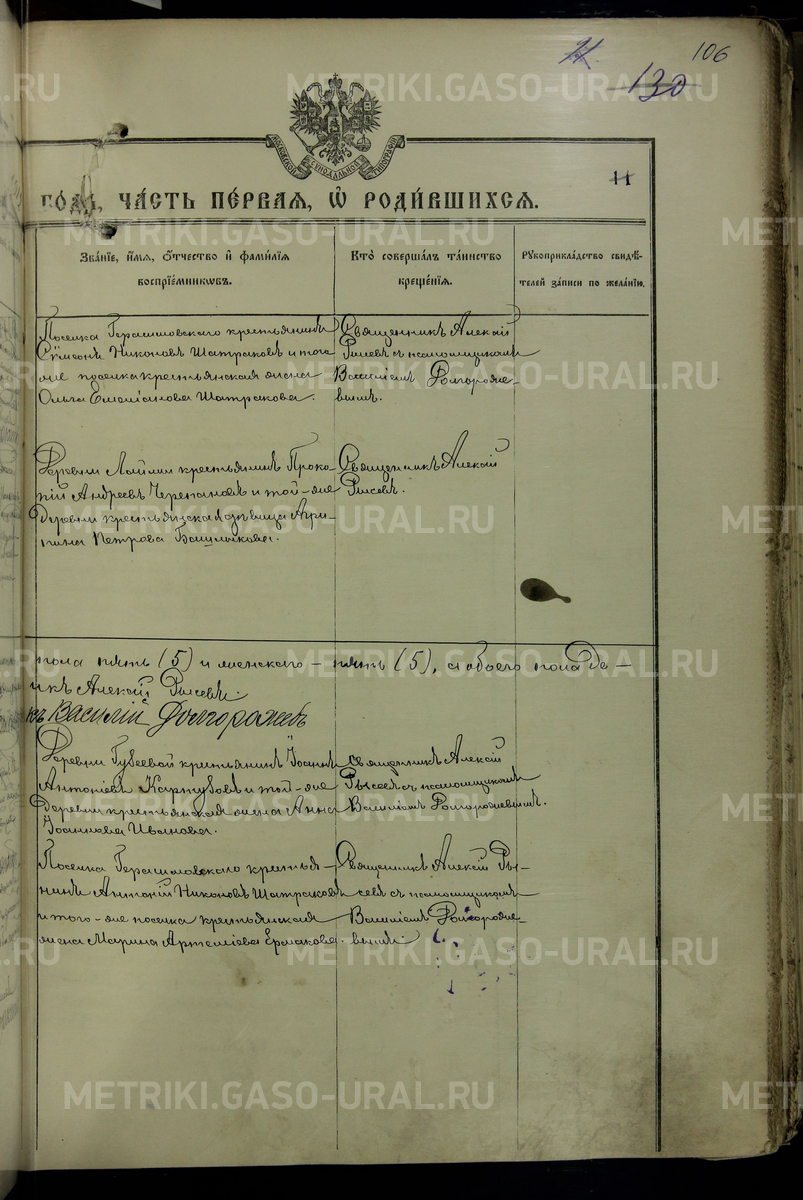 106
130
МОСКОВСКОЙ СѴНОДАЛЬНОЙ ТИПОГРАФІИ
11
го́дъ, ча́сть пе́рваѧ, ѡ҆ роди́вшихсѧ.
Зва́нїе, и҆́мѧ, ѻ҆́тчество и҆ фами́лїѧ
воспрїе́мникѡвъ.
Кто̀ соверша́лъ та́инство
креще́нїѧ.
Рꙋкоприкла́дство свидѣ́-
телей за́писи по жела́нїю.
Поселка Герасимовскаго крестьянинъ
Сѵмеонъ Никоновъ Шатраковъ и того
же поселка крестьянская жена
Ольга Емеліанова Шатракова.
Священникъ Алексій
Рысевъ съ псаломщикомъ
Василіемъ Долгороже-
вымъ.
Деревни крестьянинъ Проко-
пій Андреевъ Черепановъ и той-же
деревни крестьянская дѣвица Агри-
пина Петрова
Священникъ Алексій
Рысевъ.
пола пять (5) и женскаго - пять (5), а обоего пола де -
икъ Алексій Рысевъ.
къ Василій Долгорожевъ
Деревни Губеевой крестьянинъ Іоаннъ
Антоніевъ и той-же
деревни крестьянская жена Анна
Іоаннова Иванова.
Священникъ Алексій
Рысевъ съ псаломщикомъ
Василіемъ Долгорожевымъ.
Поселка Герасимовскаго крестья-
нинъ Антоній Никоновъ Шатраковъ
и того-же поселка крестьянская
жена Марина Артеміева Ермакова.
Священникъ Алексій Ры-
севъ съ псаломщикомъ
Василіемъ Долгороже-
вымъ.
METRIKI.GASO-URAL.RU